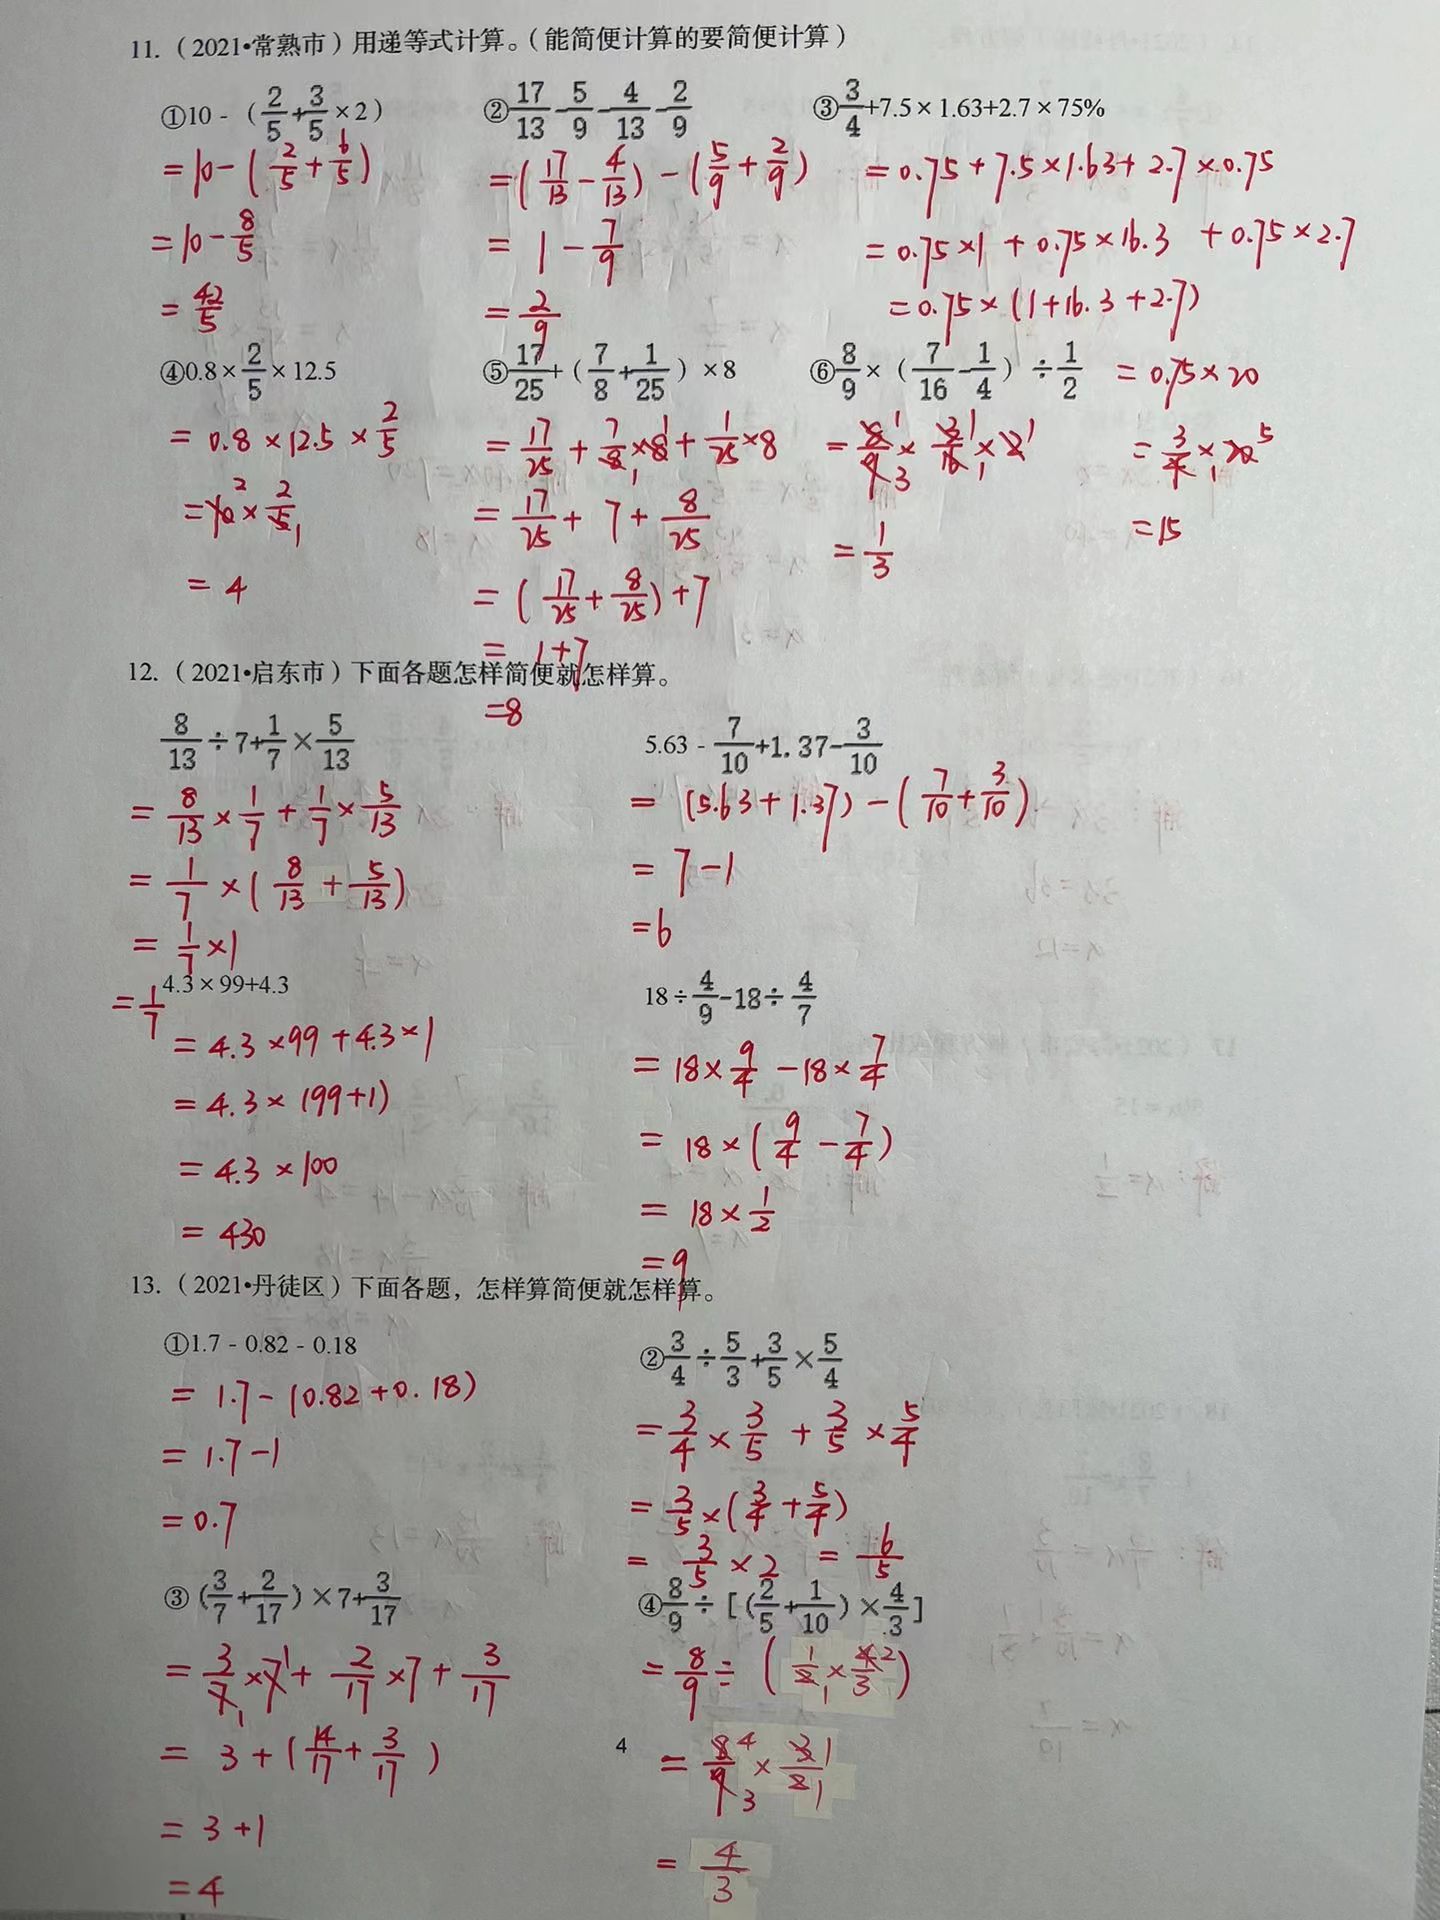 11.（2021•常熟市）用递等式计算。（能简便计算的要简便计算）
①10 - （2/5+3/5×2）
=10-(2/5+6/5)
=10-8/5
=42/5
②17/13-5/9-4/13-2/9
=(17/13-4/13)-(5/9+2/9)
=1-7/9
=2/9
③3/4+7.5×1.63+2.7×75%
=0.75+7.5×1.63+2.7×0.75
=0.75×1+0.75×16.3+0.75×2.7
=0.75×(1+16.3+2.7)
=0.75×20
=3/4×20 5 1
=15
④0.8×2/5×12.5
=0.8×12.5×2/5
=10×2/5 2 1
=4
⑤17/25+（7/8+1/25）×8
=17/25+7/8×8+1/25×8 1 1
=17/25+7+8/25
=(17/25+8/25)+7
=1+7
=8
⑥8/9×（7/16-1/4）÷1/2
=8/9×3/16×2 1 3 1 1 1
=1/3
12.（2021•启东市）下面各题怎样简便就怎样算。
8/13÷7+1/7×5/13
=8/13×1/7+1/7×5/13
=1/7×(8/13+5/13)
=1/7×1
=1/7
5.63 - 7/10+1.37-3/10
=(5.63+1.37)-(7/10+3/10)
=7-1
=6
4.3×99+4.3
=4.3×99+4.3×1
=4.3×(99+1)
=4.3×100
=430
18÷4/9-18÷4/7
=18×9/4-18×7/4
=18×(9/4-7/4)
=18×1/2
=9
13.（2021•丹徒区）下面各题，怎样算简便就怎样算。
①1.7 - 0.82 - 0.18
=1.7-(0.82+0.18)
=1.7-1
=0.7
②3/4÷5/3+3/5×5/4
=3/4×3/5+3/5×5/4
=3/5×(3/4+5/4)
=3/5×2=6/5
③（3/7+2/17）×7+3/17
=3/7×7+2/17×7+3/17 1 1
=3+(14/17+3/17)
=3+1
=4
④8/9÷[（2/5+1/10）×4/3]
=8/9÷(1/2×4/3) 2 1
=8/9×3/2 4 1 3 1
=4/3
4